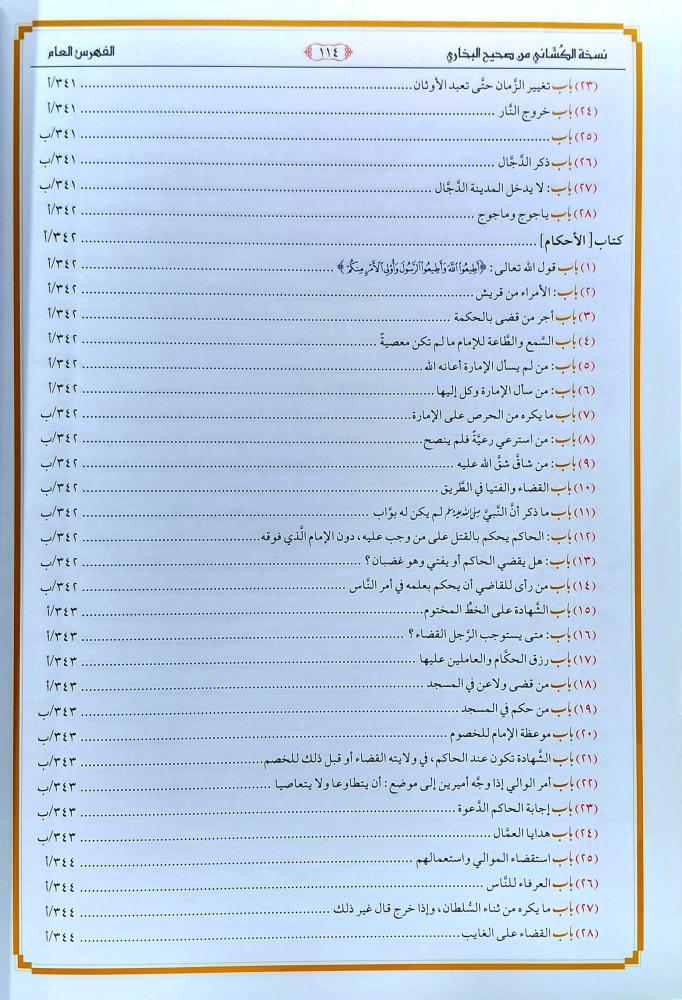 نسخة الكُشَّاني من صحيح البخاري ١١٤ الفهرس العام
(٢٣) باب تغيير الزَّمان حتَّى تعبد الأوثان ٣٤١/أ
(٢٤) باب خروج النَّار ٣٤١/أ
(٢٥) باب ٣٤١/ب
(٢٦) باب ذكر الدَّجَّال ٣٤١/ب
(٢٧) باب: لا يدخل المدينة الدَّجَّال ٣٤١/ب
(٢٨) باب ياجوج وماجوج ٣٤٢/أ
كتاب [الأحكام] ٣٤٢/أ
(١) باب قول الله تعالى: ﴿أَطِيعُوا۟ ٱللَّهَ وَأَطِيعُوا۟ ٱلرَّسُولَ وَأُو۟لِى ٱلْأَمْرِ مِنكُمْ﴾ ٣٤٢/أ
(٢) باب: الأمراء من قريش ٣٤٢/أ
(٣) باب أجر من قضى بالحكمة ٣٤٢/أ
(٤) باب السَّمع والطَّاعة للإمام ما لم تكن معصيةً ٣٤٢/أ
(٥) باب: من لم يسأل الإمارة أعانه الله ٣٤٢/أ
(٦) باب: من سأل الإمارة وكل إليها ٣٤٢/أ
(٧) باب ما يكره من الحرص على الإمارة ٣٤٢/ب
(٨) باب: من استرعي رعيَّةً فلم ينصح ٣٤٢/ب
(٩) باب: من شاقَّ شقَّ الله عليه ٣٤٢/ب
(١٠) باب القضاء والفتيا في الطَّريق ٣٤٢/ب
(١١) باب ما ذكر أنَّ النَّبيَّ ﷺ لم يكن له بوَّاب ٣٤٢/ب
(١٢) باب: الحاكم يحكم بالقتل على من وجب عليه، دون الإمام الَّذي فوقه ٣٤٢/ب
(١٣) باب: هل يقضي الحاكم أو يفتي وهو غضبان؟ ٣٤٢/ب
(١٤) باب من رأى للقاضي أن يحكم بعلمه في أمر النَّاس ٣٤٢/ب
(١٥) باب الشَّهادة على الخطِّ المختوم ٣٤٣/أ
(١٦) باب: متى يستوجب الرَّجل القضاء؟ ٣٤٣/أ
(١٧) باب رزق الحكَّام والعاملين عليها ٣٤٣/أ
(١٨) باب من قضى ولاعن في المسجد ٣٤٣/أ
(١٩) باب من حكم في المسجد ٣٤٣/ب
(٢٠) باب موعظة الإمام للخصوم ٣٤٣/ب
(٢١) باب الشَّهادة تكون عند الحاكم، في ولايته القضاء أو قبل ذلك للخصم ٣٤٣/ب
(٢٢) باب أمر الوالي إذا وجَّه أميرين إلى موضع: أن يتطاوعا ولا يتعاصيا ٣٤٣/ب
(٢٣) باب إجابة الحاكم الدَّعوة ٣٤٣/ب
(٢٤) باب هدايا العمَّال ٣٤٣/ب
(٢٥) باب استقضاء الموالي واستعمالهم ٣٤٤/أ
(٢٦) باب العرفاء للنَّاس ٣٤٤/أ
(٢٧) باب ما يكره من ثناء السُّلطان، وإذا خرج قال غير ذلك ٣٤٤/أ
(٢٨) باب القضاء على الغايب ٣٤٤/أ